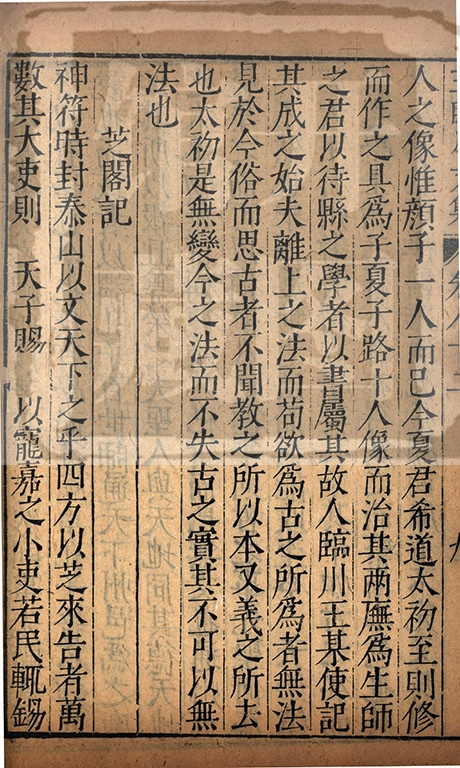 人之像惟顏子一人而已今夏君希道太初至則修
而作之具爲子夏子路十人像而治其兩廡爲生師
之君以待縣之學者以書屬其故人臨川王某使記
其成之始夫離上之法而苟欲爲古之所爲者無法
見於今俗而思古者不聞教之所以本又義之所去
也太初是無變今之法而不失古之實其不可以無
法也
芝閣記
神符時封泰山以文天下之平四方以芝來告者萬
數其大吏則　天子賜　以寵嘉之小吏若民輒錫